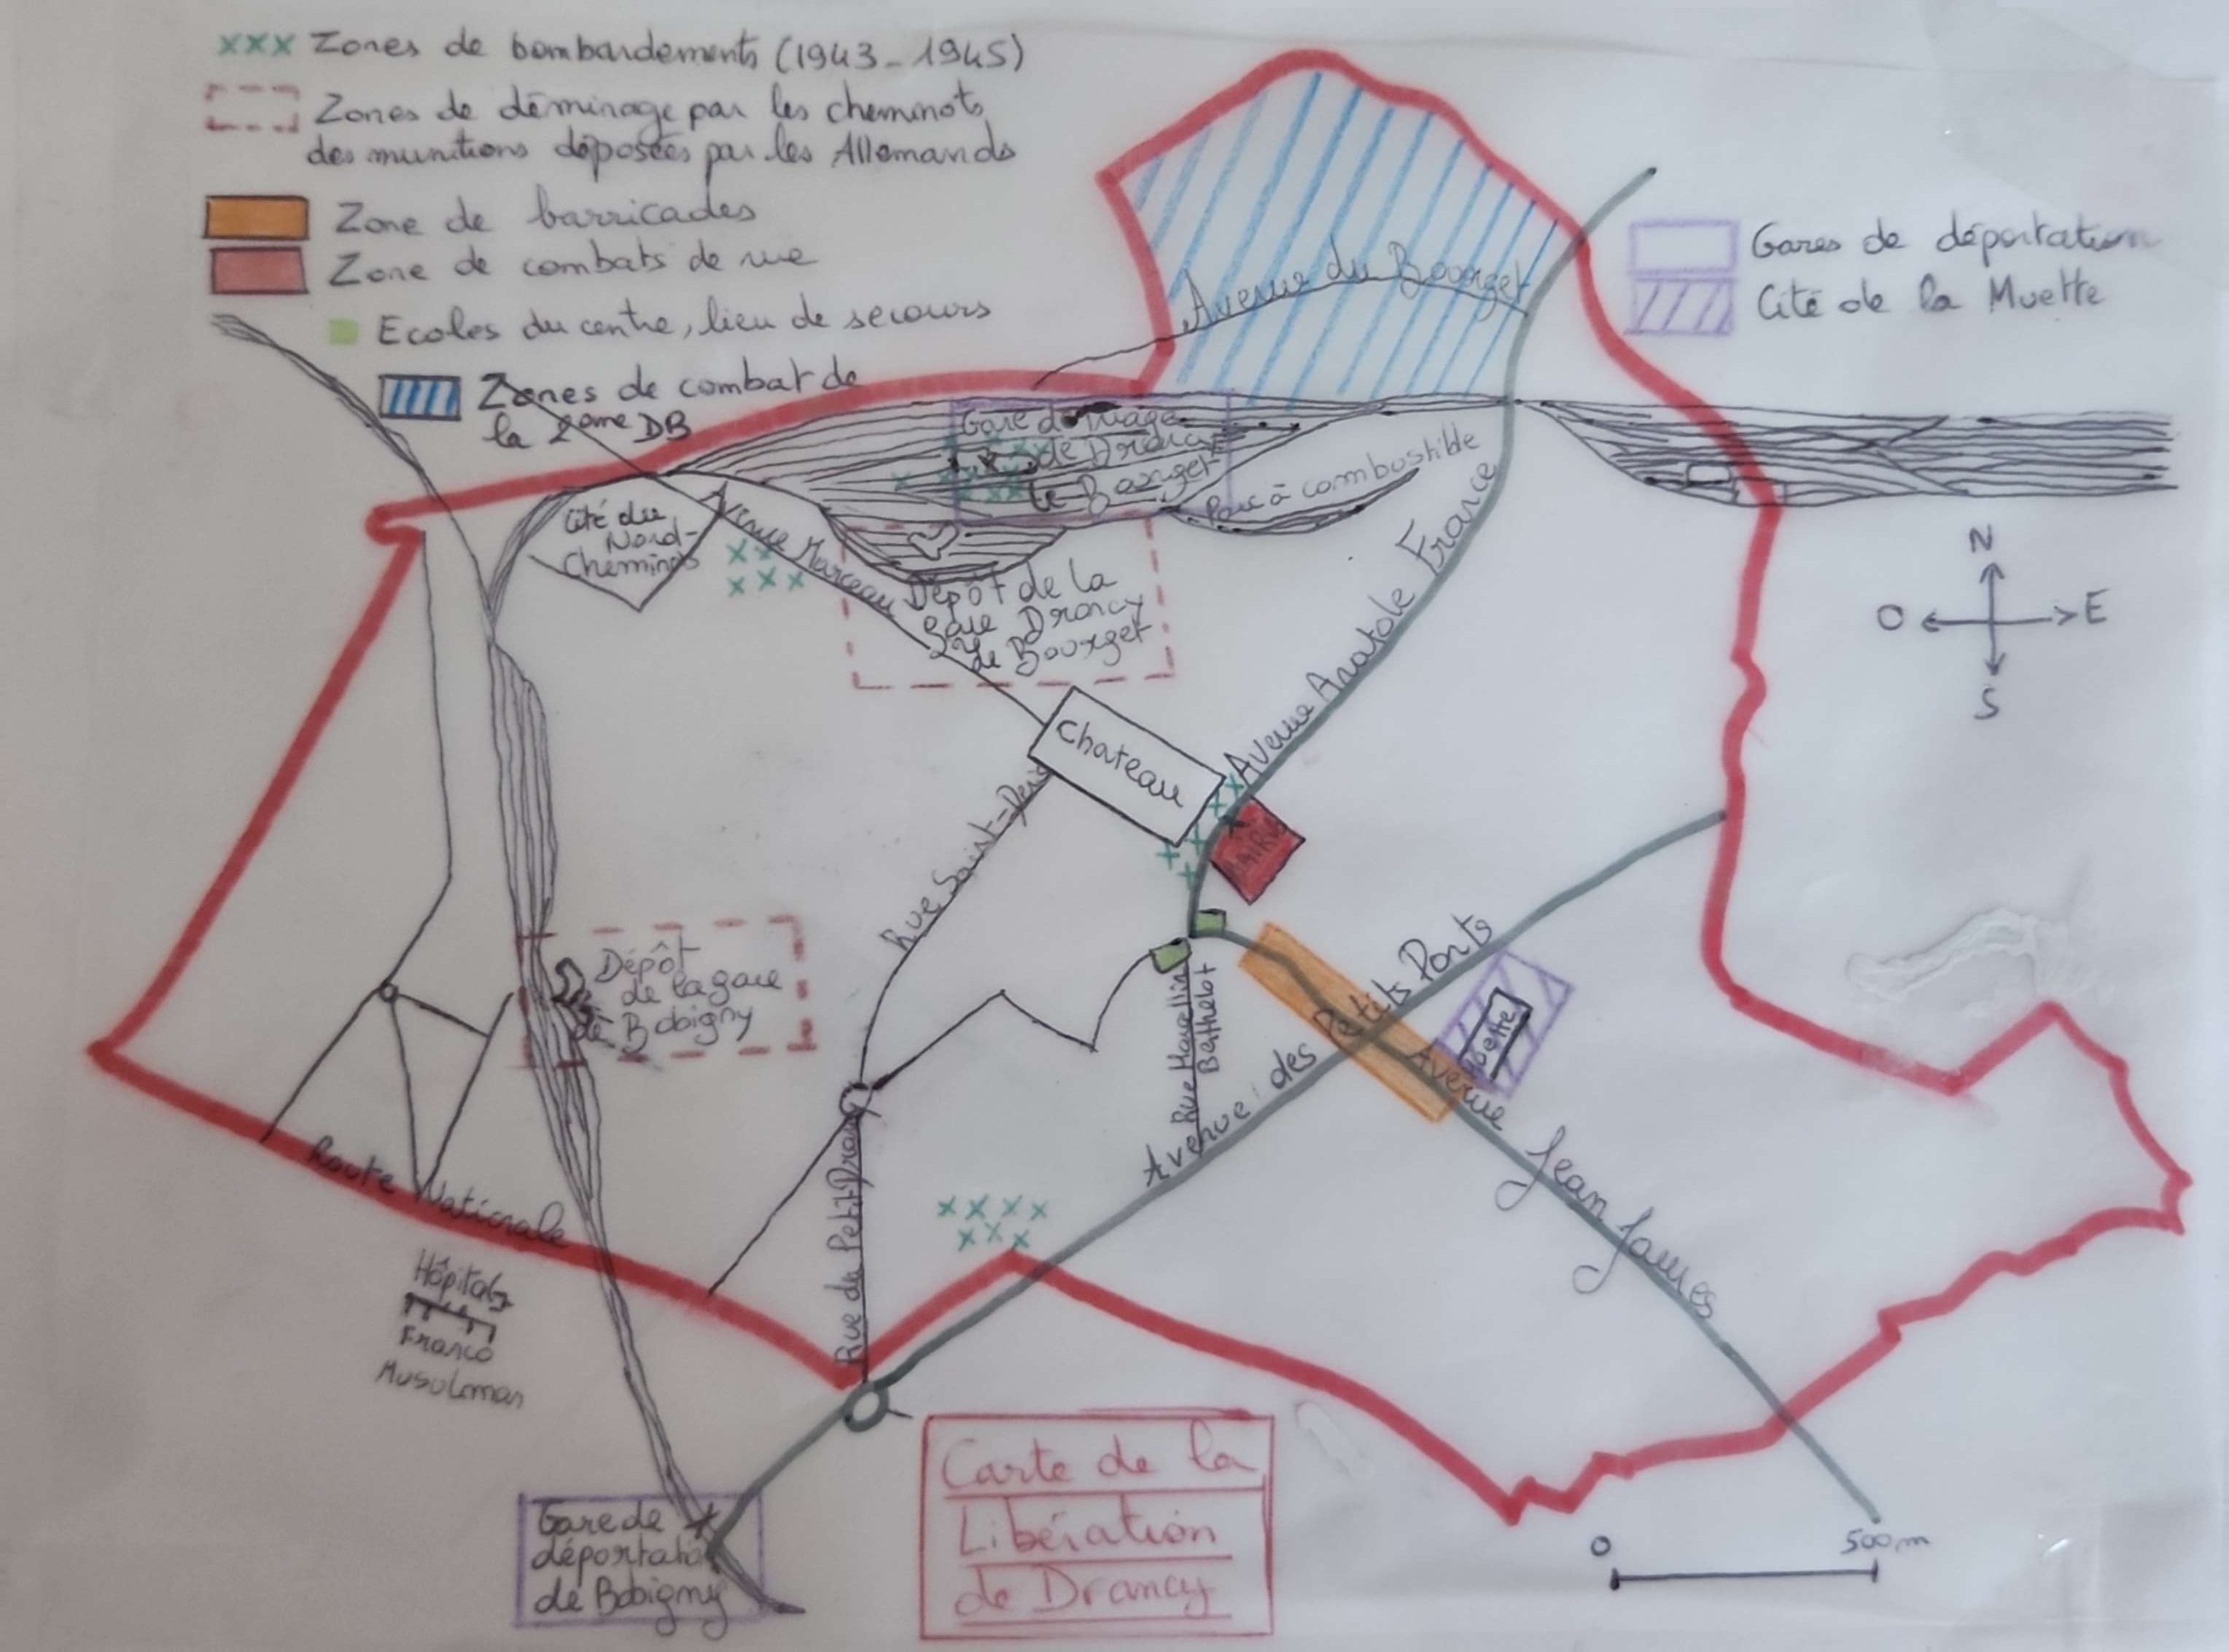 xxx Zones de bombardements (1943-1945)
Zones de déminage par les cheminots
des munitions déposées par les Allemands
Zone de barricades
Zone de combats de rue
Ecoles du centre, lieu de secours
Zones de combat de
la 2ème DB
Gares de déportation
Cité de la Muette
Avenue du Bourget
Gare de triage
de Drancy
le Bourget
Parc à combustible
Cité du
Nord-
Cheminots
Avenue Marceau
Dépôt de la
gare Drancy
le Bourget
Avenue Anatole France
N
O E
S
Chateau
MAIRIE
Rue Saint-Denis
Dépôt
de la gare
de Bobigny
Rue Marcellin
Berthelot
Avenue des Petits Ponts
Muette
Avenue Jean Jaures
Route Nationale
Rue du Petit Drancy
Hôpital
Franco
Musulman
Gare de
déportation
de Bobigny
Carte de la
Libération
de Drancy
0 500m